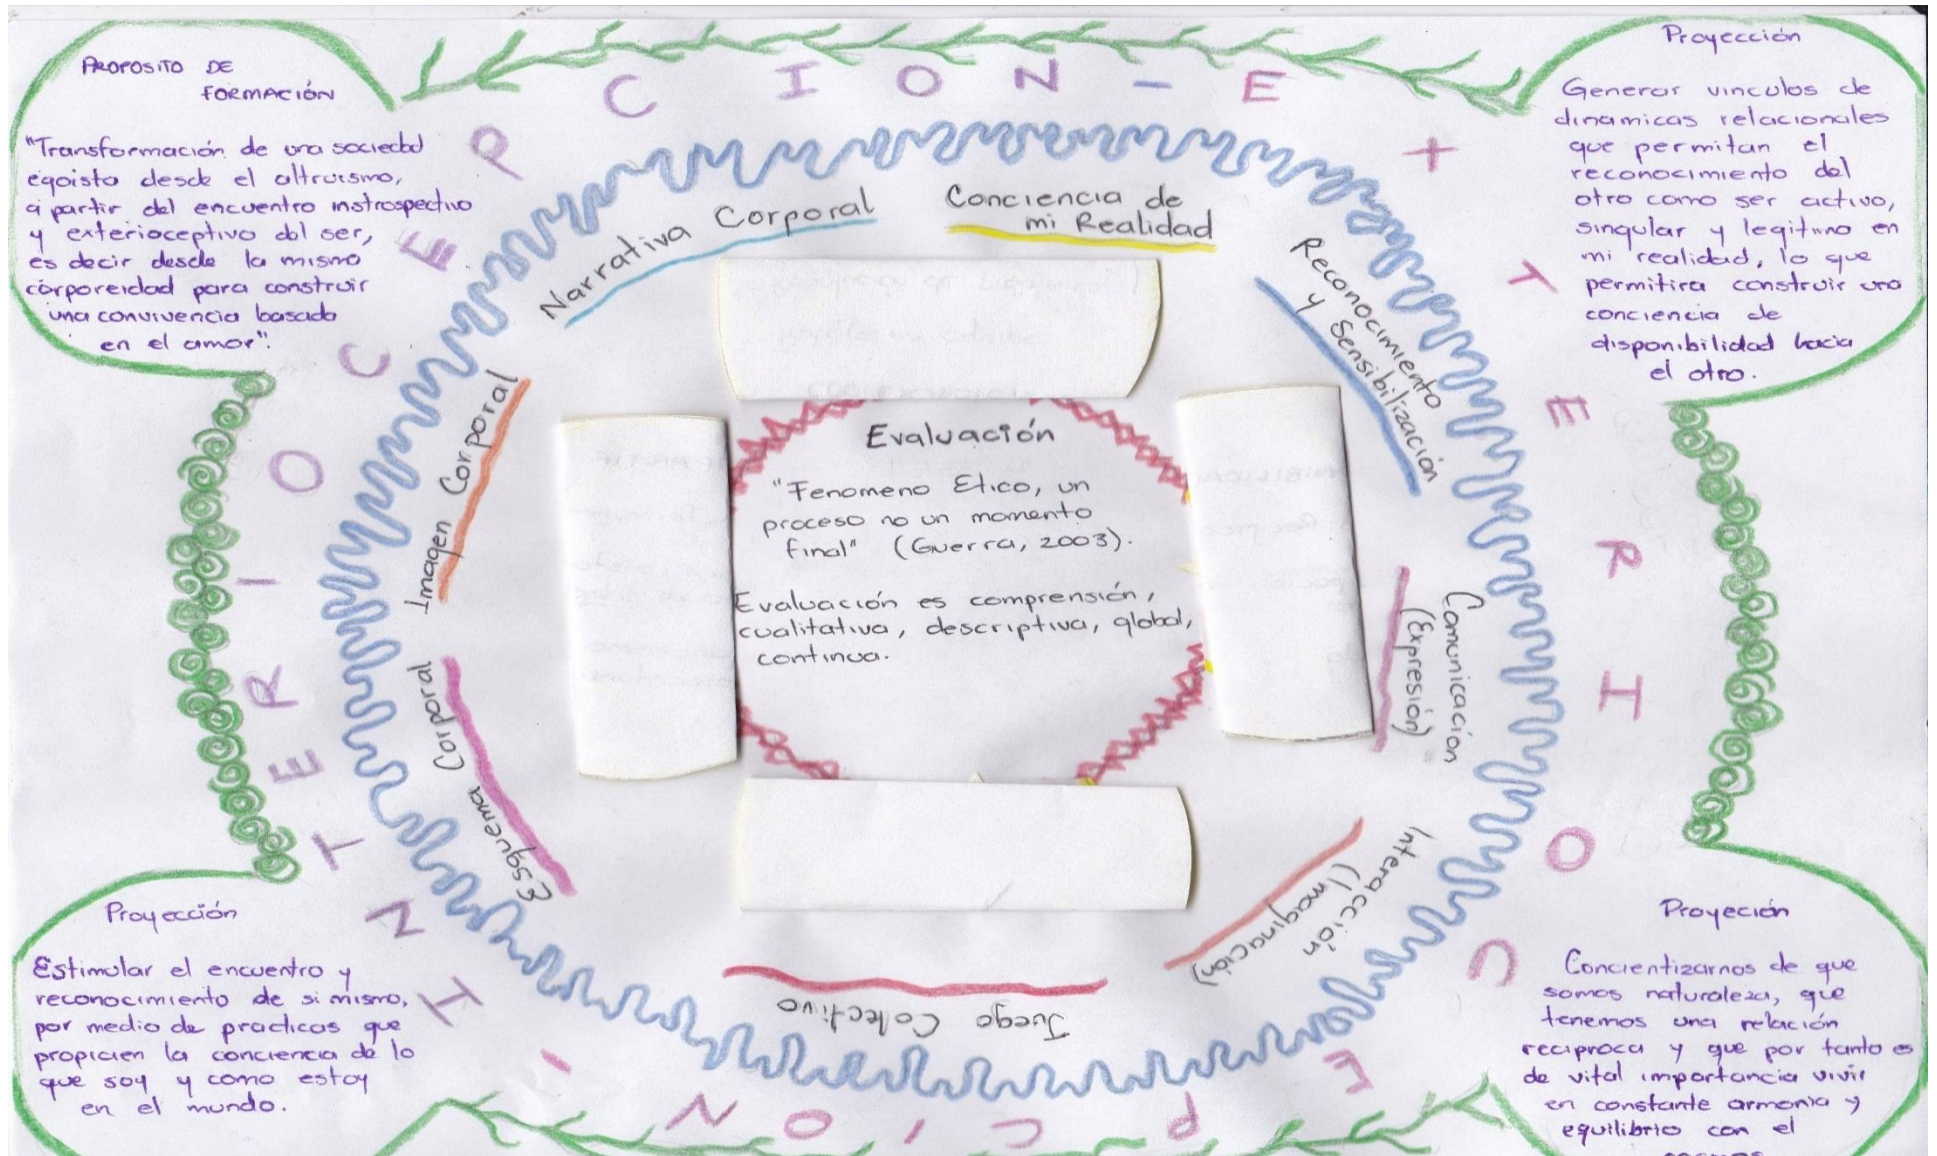 PROPOSITO DE
FORMACIÓN
"Transformación de una sociedad
egoista desde el altruismo,
a partir del encuentro instrospectivo
y exterioceptivo del ser,
es decir desde la misma
corporeidad para construir
una convivencia basada
en el amor".
Proyección
Generar vinculos de
dinamicas relacionales
que permitan el
reconocimiento del
otro como ser activo,
singular y legitimo en
mi realidad, lo que
permitira construir una
conciencia de
disponibilidad hacia
el otro.
INTERIOCEPCION-EXTERIOCEPCION-
Narrativa Corporal
Conciencia de
mi Realidad
Reconocimiento
y Sensibilización
Comunicación
(Expresión)
Interacción
(Imaginación)
Juego Colectivo
Esquema Corporal
Imagen Corporal
Evaluación
"Fenomeno Etico, un
proceso no un momento
final" (Guerra, 2003).
Evaluación es comprensión,
cualitativa, descriptiva, global,
continua.
Proyección
Estimular el encuentro y
reconocimiento de si mismo,
por medio de practicas que
propicien la conciencia de lo
que soy y como estoy
en el mundo.
Proyeción
Concientizarnos de que
somos naturaleza, que
tenemos una relación
reciproca y que por tanto es
de vital importancia vivir
en constante armonia y
equilibrio con el